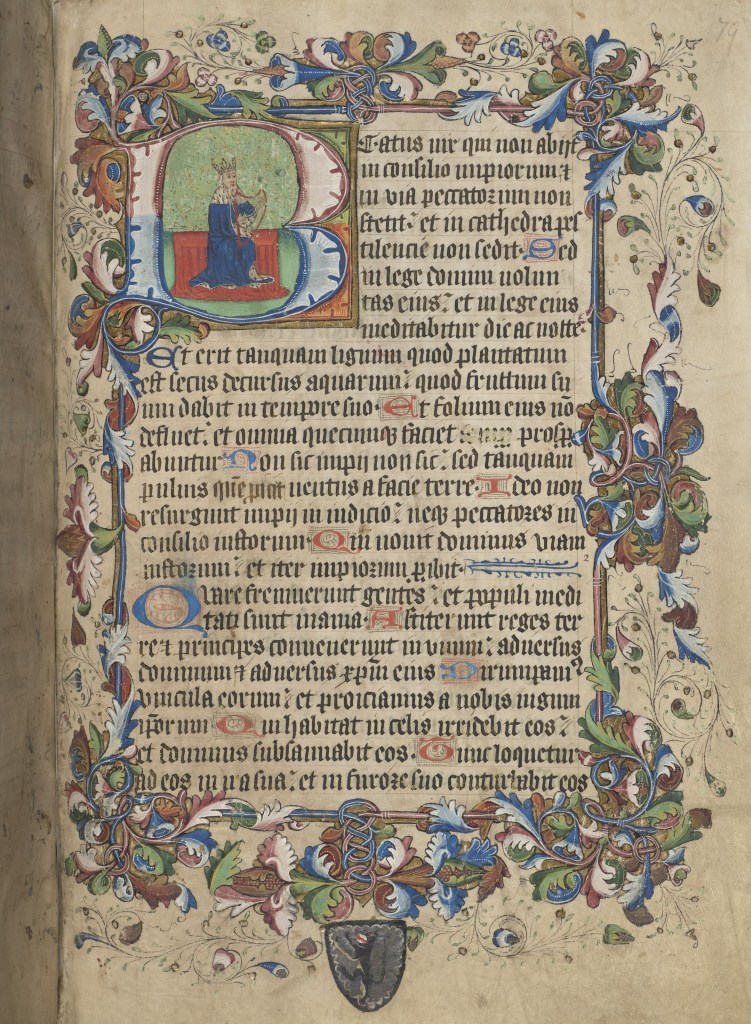 79
Beatus vir qui non abijt
in consilio impiorum ⁊
in via peccatorum non
stetit: et in cathedra pes
tilencie non sedit. Sed
in lege domini volun
tas eius: et in lege eius
meditabitur die ac nocte.
Et erit tanquam lignum quod plantatum
est secus decursus aquarum: quod fructum su
um dabit in tempore suo. Et folium eius nō
defluet: et omnia quecumqꝫ faciet prosꝑ
abuntur Non sic impij non sic: sed tanquam
puluis quē ꝓicit ventus a facie terre. Ideo non
resurgunt impij in iudicio: neqꝫ peccatores in
consilio iustorum. Qm nouit dominus viam
iustorum: et iter impiorum ꝑibit.
2
Quare fremuerunt gentes: et populi medi
tati sunt inania. Astiterunt reges ter
re ⁊ principes conuenerunt in vnum: aduersus
dominum ⁊ aduersus xp̄m eius Dirumpamꝰ
vincula eorum: et proiciamus a nobis iugum
ip̄orum Qui habitat in celis irridebit eos:
et dominus subsannabit eos. Tunc loquetur
ad eos in ira sua: et in furore suo conturbabit eos